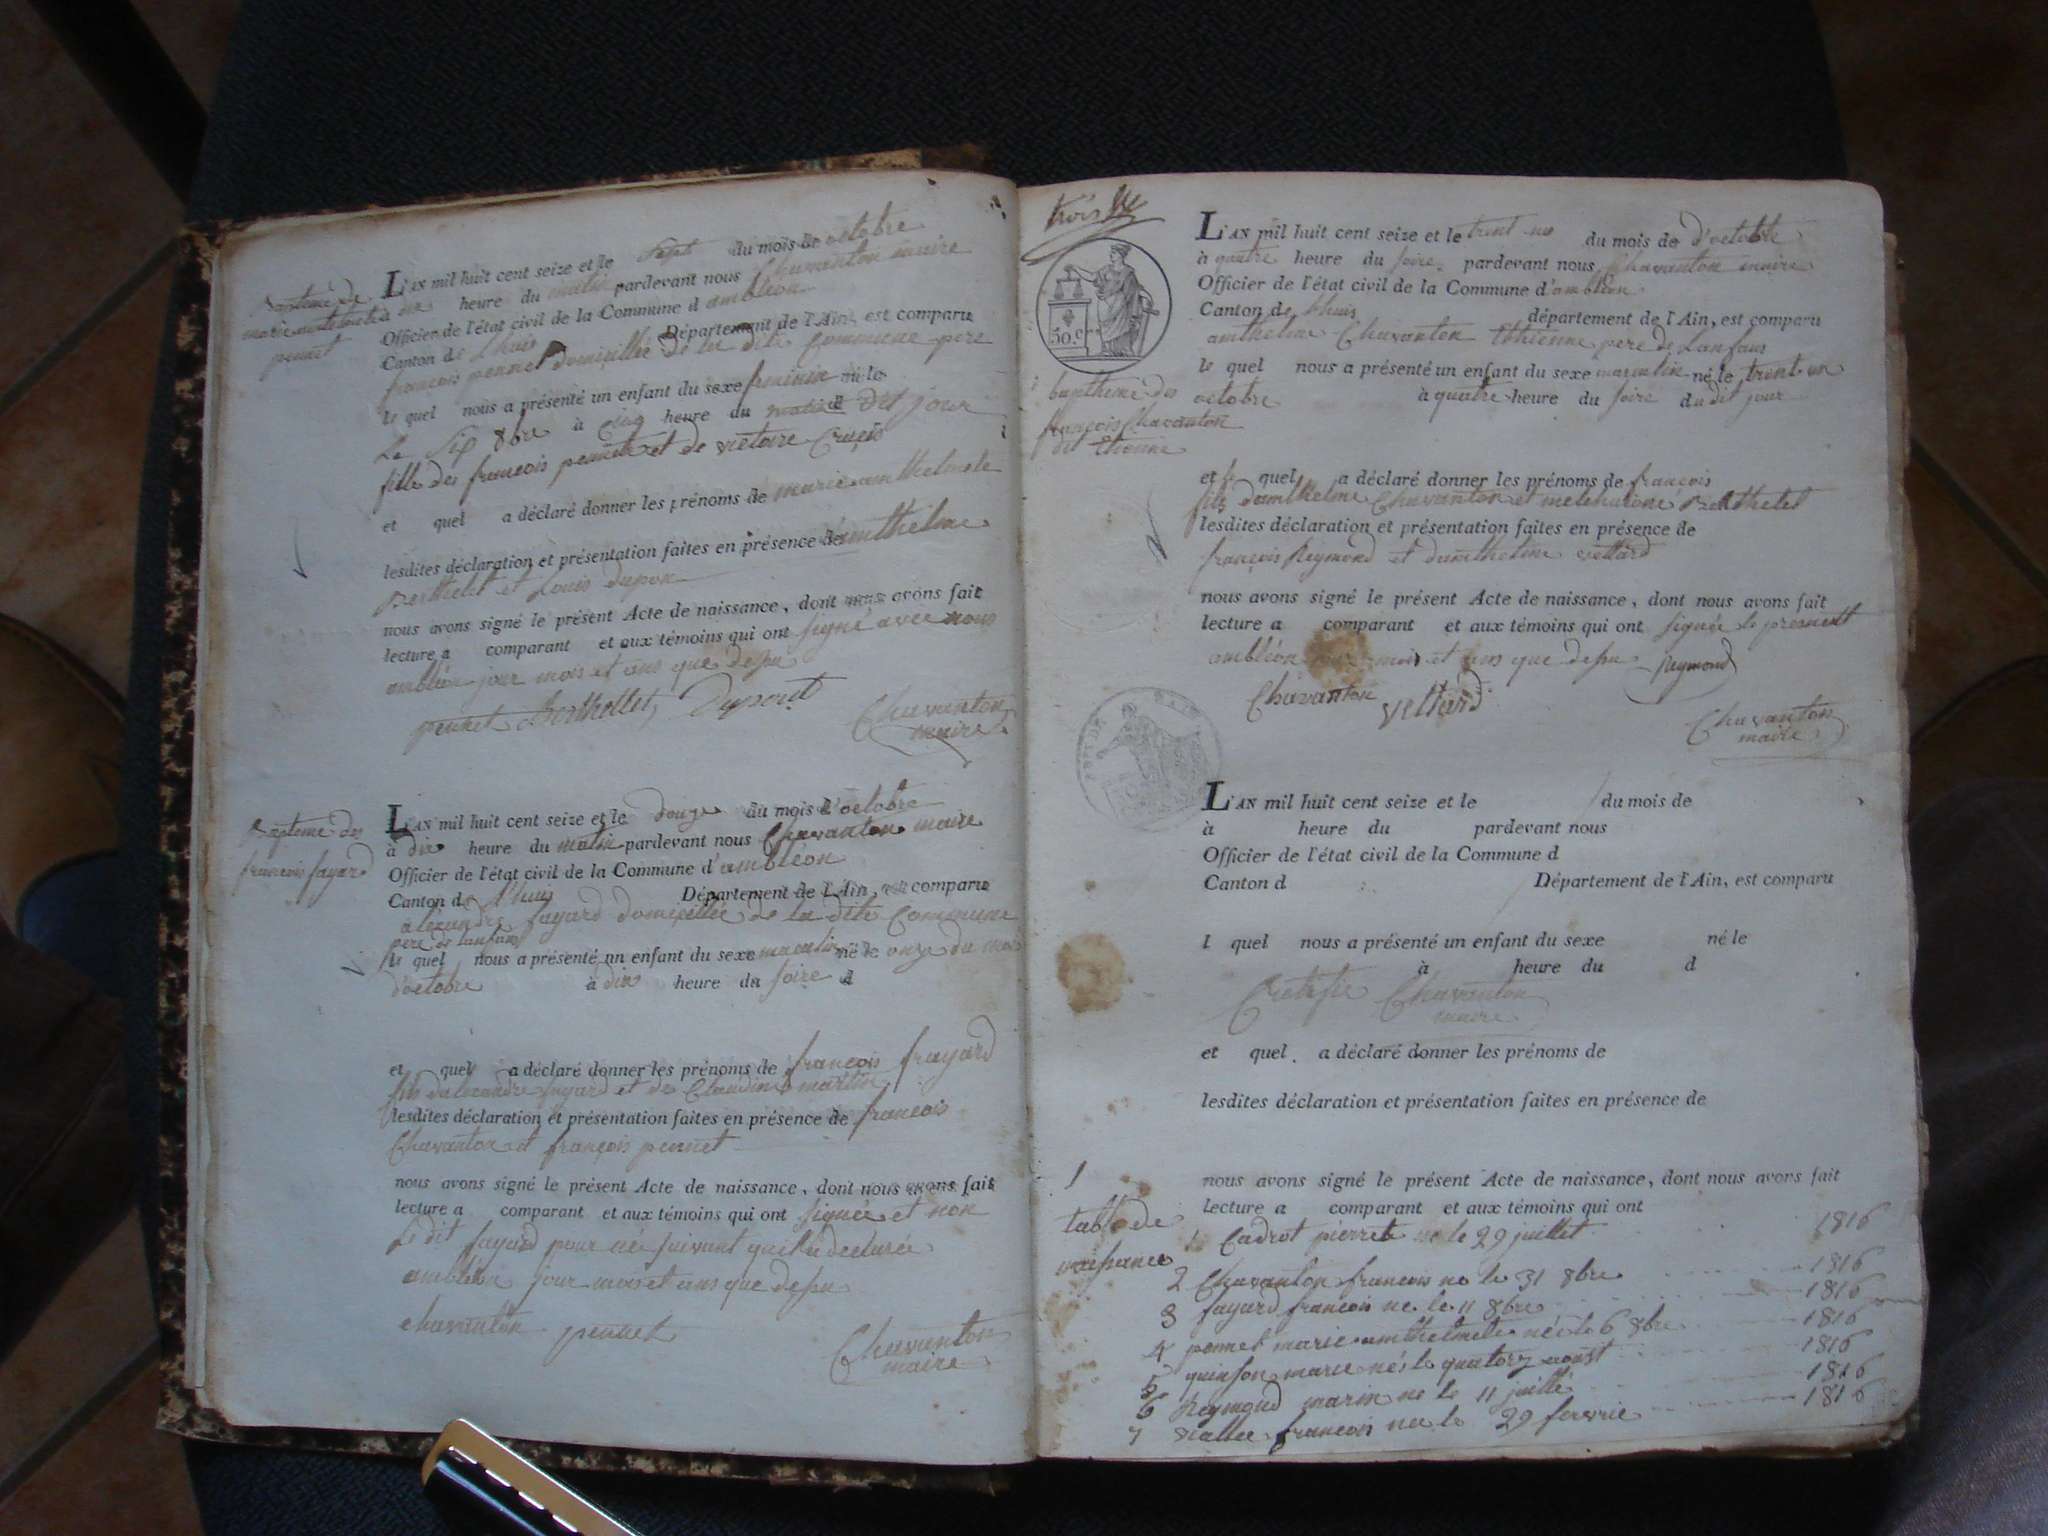 Bapteme de
marie anthelmette
pernet
L'AN mil huit cent seize et le sept du mois de octobre
à une heure du matin pardevant nous Chavanton maire
Officier de l'état civil de la Commune d'ambléon
Canton de Lhuis Département de l'Ain, est comparu
françois pernet domicillié de la dite Commune pere
le quel nous a présenté un enfant du sexe feminin né le
Le six 8bre à cinq heure du matin dit jour
fille des francois pernet et de victoire
et quel a déclaré donner les prénoms de marie anthelmete
lesdites déclaration et présentation faites en présence de d'anthelme
Berthelet et Louis dupon
nous avons signé le présent Acte de naissance, dont nous avons fait
lecture a comparant et aux témoins qui ont signé avec nous
ambléon jour mois et ans que depu
pernet Berthellet Dupont Chavanton
maire
Bapteme des
francois fayard
L'AN mil huit cent seize et le douze du mois d'octobre
à dix heure du matin pardevant nous Chavanton maire
Officier de l'état civil de la Commune d'ambléon
Canton de Lhuis Département de l'Ain, est comparu
alexandre fayard domicillié de la dite Commune
pere de lanfant
le quel nous a présenté un enfant du sexe masculin né le onze du mois
d'octobre à dix heure du soire d
et quel a déclaré donner les prénoms de francois frayard
fils d'alexandre fayard et de Claudine martin
lesdites déclaration et présentation faites en présence de francois
Chavanton et françois pernet
nous avons signé le présent Acte de naissance, dont nous avons fait
lecture a comparant et aux témoins qui ont signée et non
Le dit fayard pour ne suivant quil a declarée
ambléon jour mois et ans que depu
chavanton pernet Chavanton
maire
trois
50 C.
L'AN mil huit cent seize et le trent un du mois de d'octobre
à quatre heure du soire pardevant nous Chavanton maire
Officier de l'état civil de la Commune d'ambléon
Canton de Lhuis département de l'Ain, est comparu
anthelme Chavanton Ethienne pere de Lanfans
le quel nous a présenté un enfant du sexe masculin né le trent un
octobre à quatre heure du soire du dit jour
baptheme des
françois Chavanton
dit Etienne
et le quel a déclaré donner les prénoms de françois
fils d'anthelme Chavanton et Berthelet
lesdites déclaration et présentation faites en présence de
françois Reymond et danthelme vettard
nous avons signé le présent Acte de naissance, dont nous avons fait
lecture a comparant et aux témoins qui ont signée le present
ambléon jour mois et ans que depu Reymond
Chavanton vettard
Chavanton
maire
L'AN mil huit cent seize et le du mois de
à heure du pardevant nous
Officier de l'état civil de la Commune d
Canton d Département de l'Ain, est comparu
l quel nous a présenté un enfant du sexe né le
à heure du d
Chavanton
maire
et quel a déclaré donner les prénoms de
lesdites déclaration et présentation faites en présence de
nous avons signé le présent Acte de naissance, dont nous avons fait
lecture a comparant et aux témoins qui ont
table de
naissance
1 Cadrot pierrete ne le 29 juillet 1816
2 Chavanton francois ne le 31 8bre 1816
3 fayard francois ne le 11 8bre 1816
4 pernet marie anthelmete née le 6 8bre 1816
5 quinson marie née le quatorz aoust 1816
6 Reymond marin ne le 11 juillé 1816
7 francois nee le 29 fevrie 1816